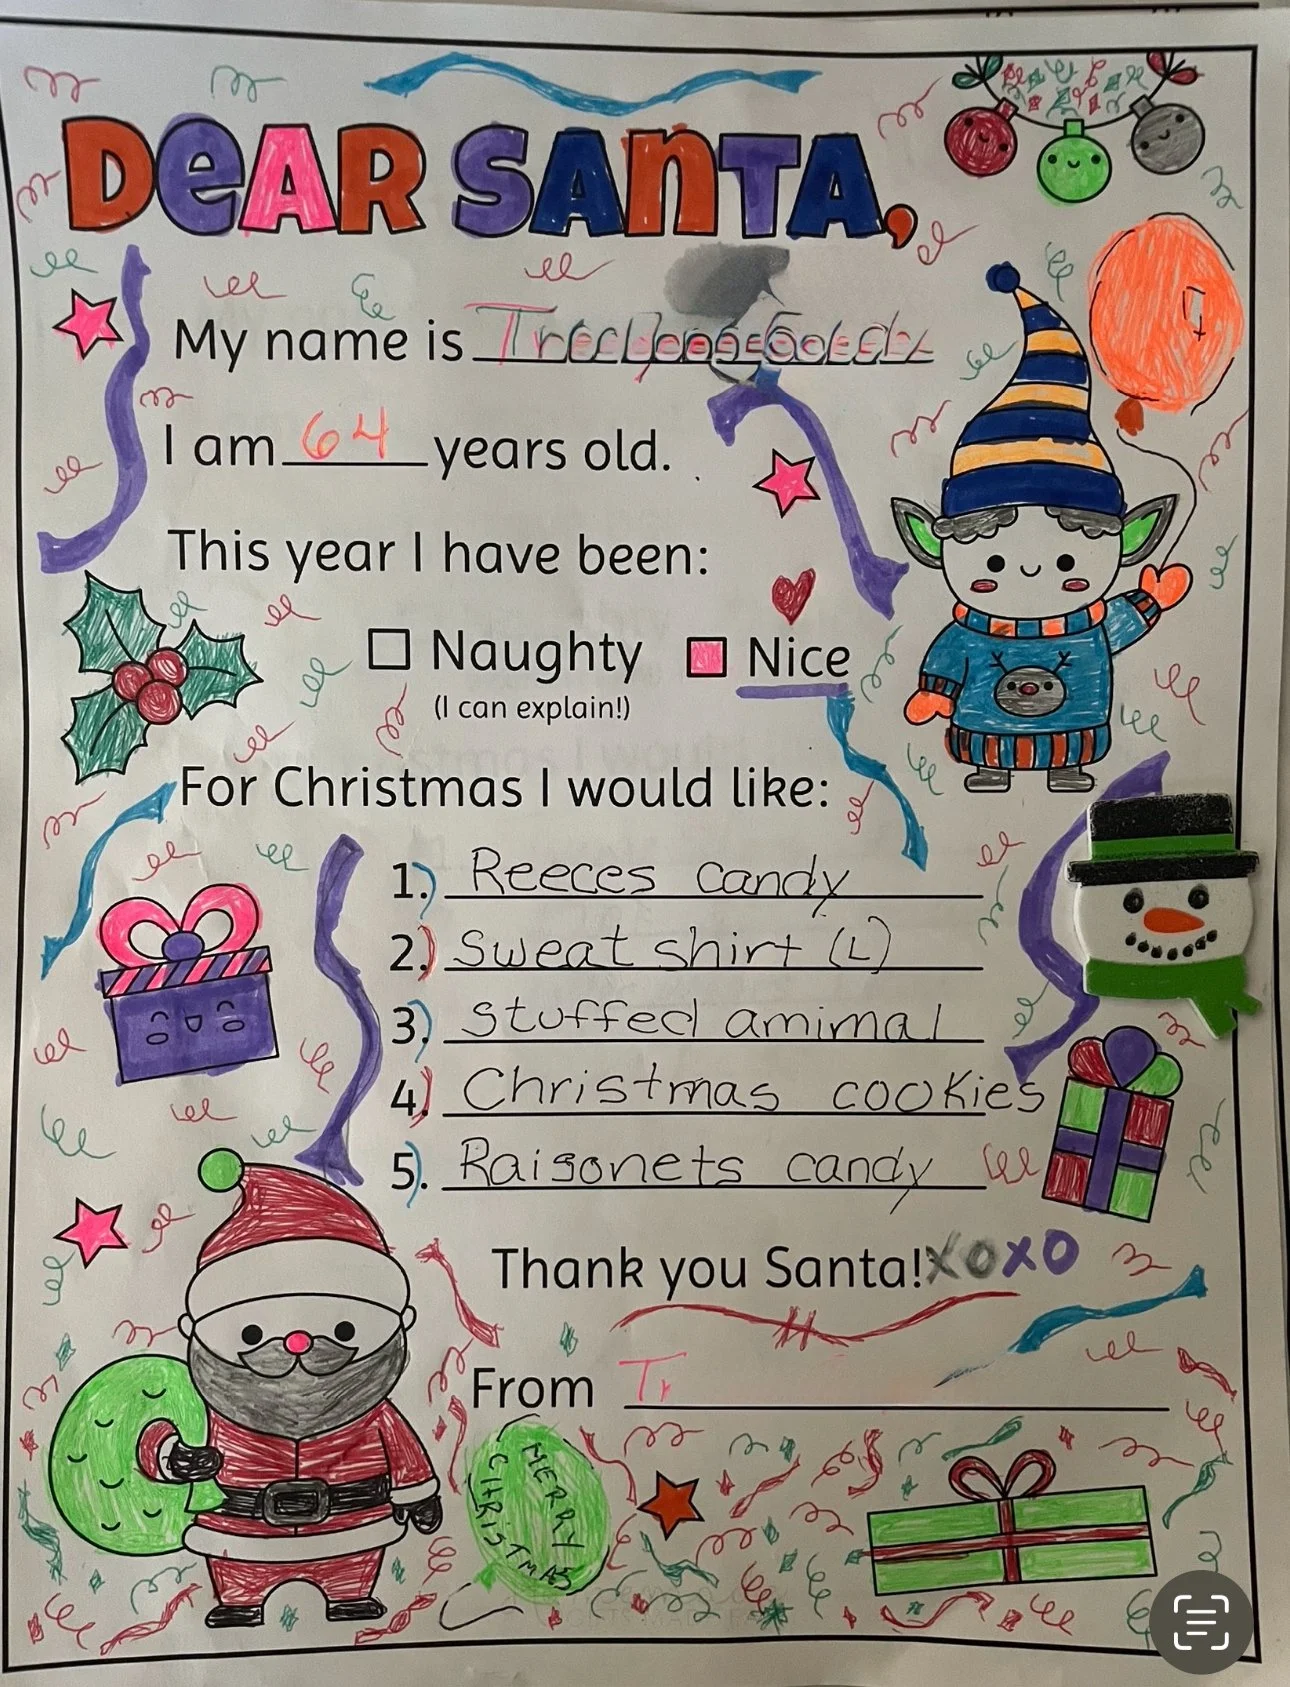 DEAR SANTA,
My name is
I am 64 years old.
This year I have been:
Naughty Nice
(I can explain!)
For Christmas I would like:
1.) Reeces candy
2.) Sweat shirt (L)
3.) Stuffed amimal
4.) Christmas cookies
5.) Raisonets candy
Thank you Santa! XOXO
From Tr
MERRY
CHRISTMAS